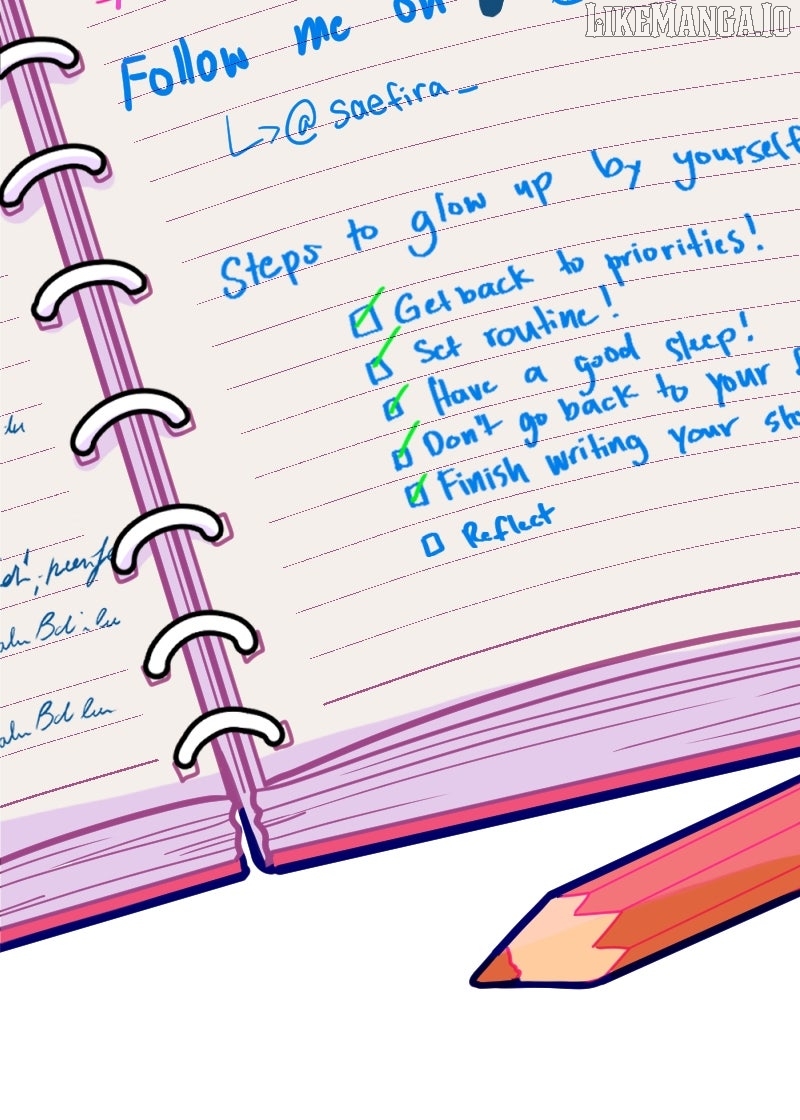 LIKEMANGA.IO
Follow me on
@saefira_
Steps to glow up by yourself
Get back to priorities!
Set routine!
Have a good sleep!
Don't go back to your
Finish writing your
Reflect
lu
Bd lu
Bd lu